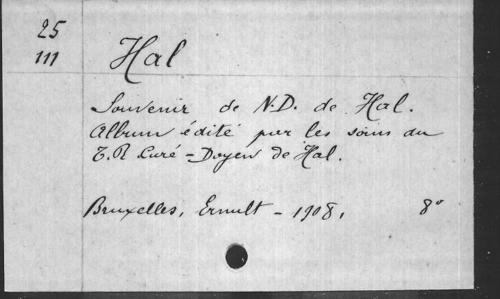 25
111
Hal
Souvenir de N.D. de Hal.
Album édité par les soins du
T. R Curé - Doyen de Hal.
Bruxelles, Ernult - 1908, 8°